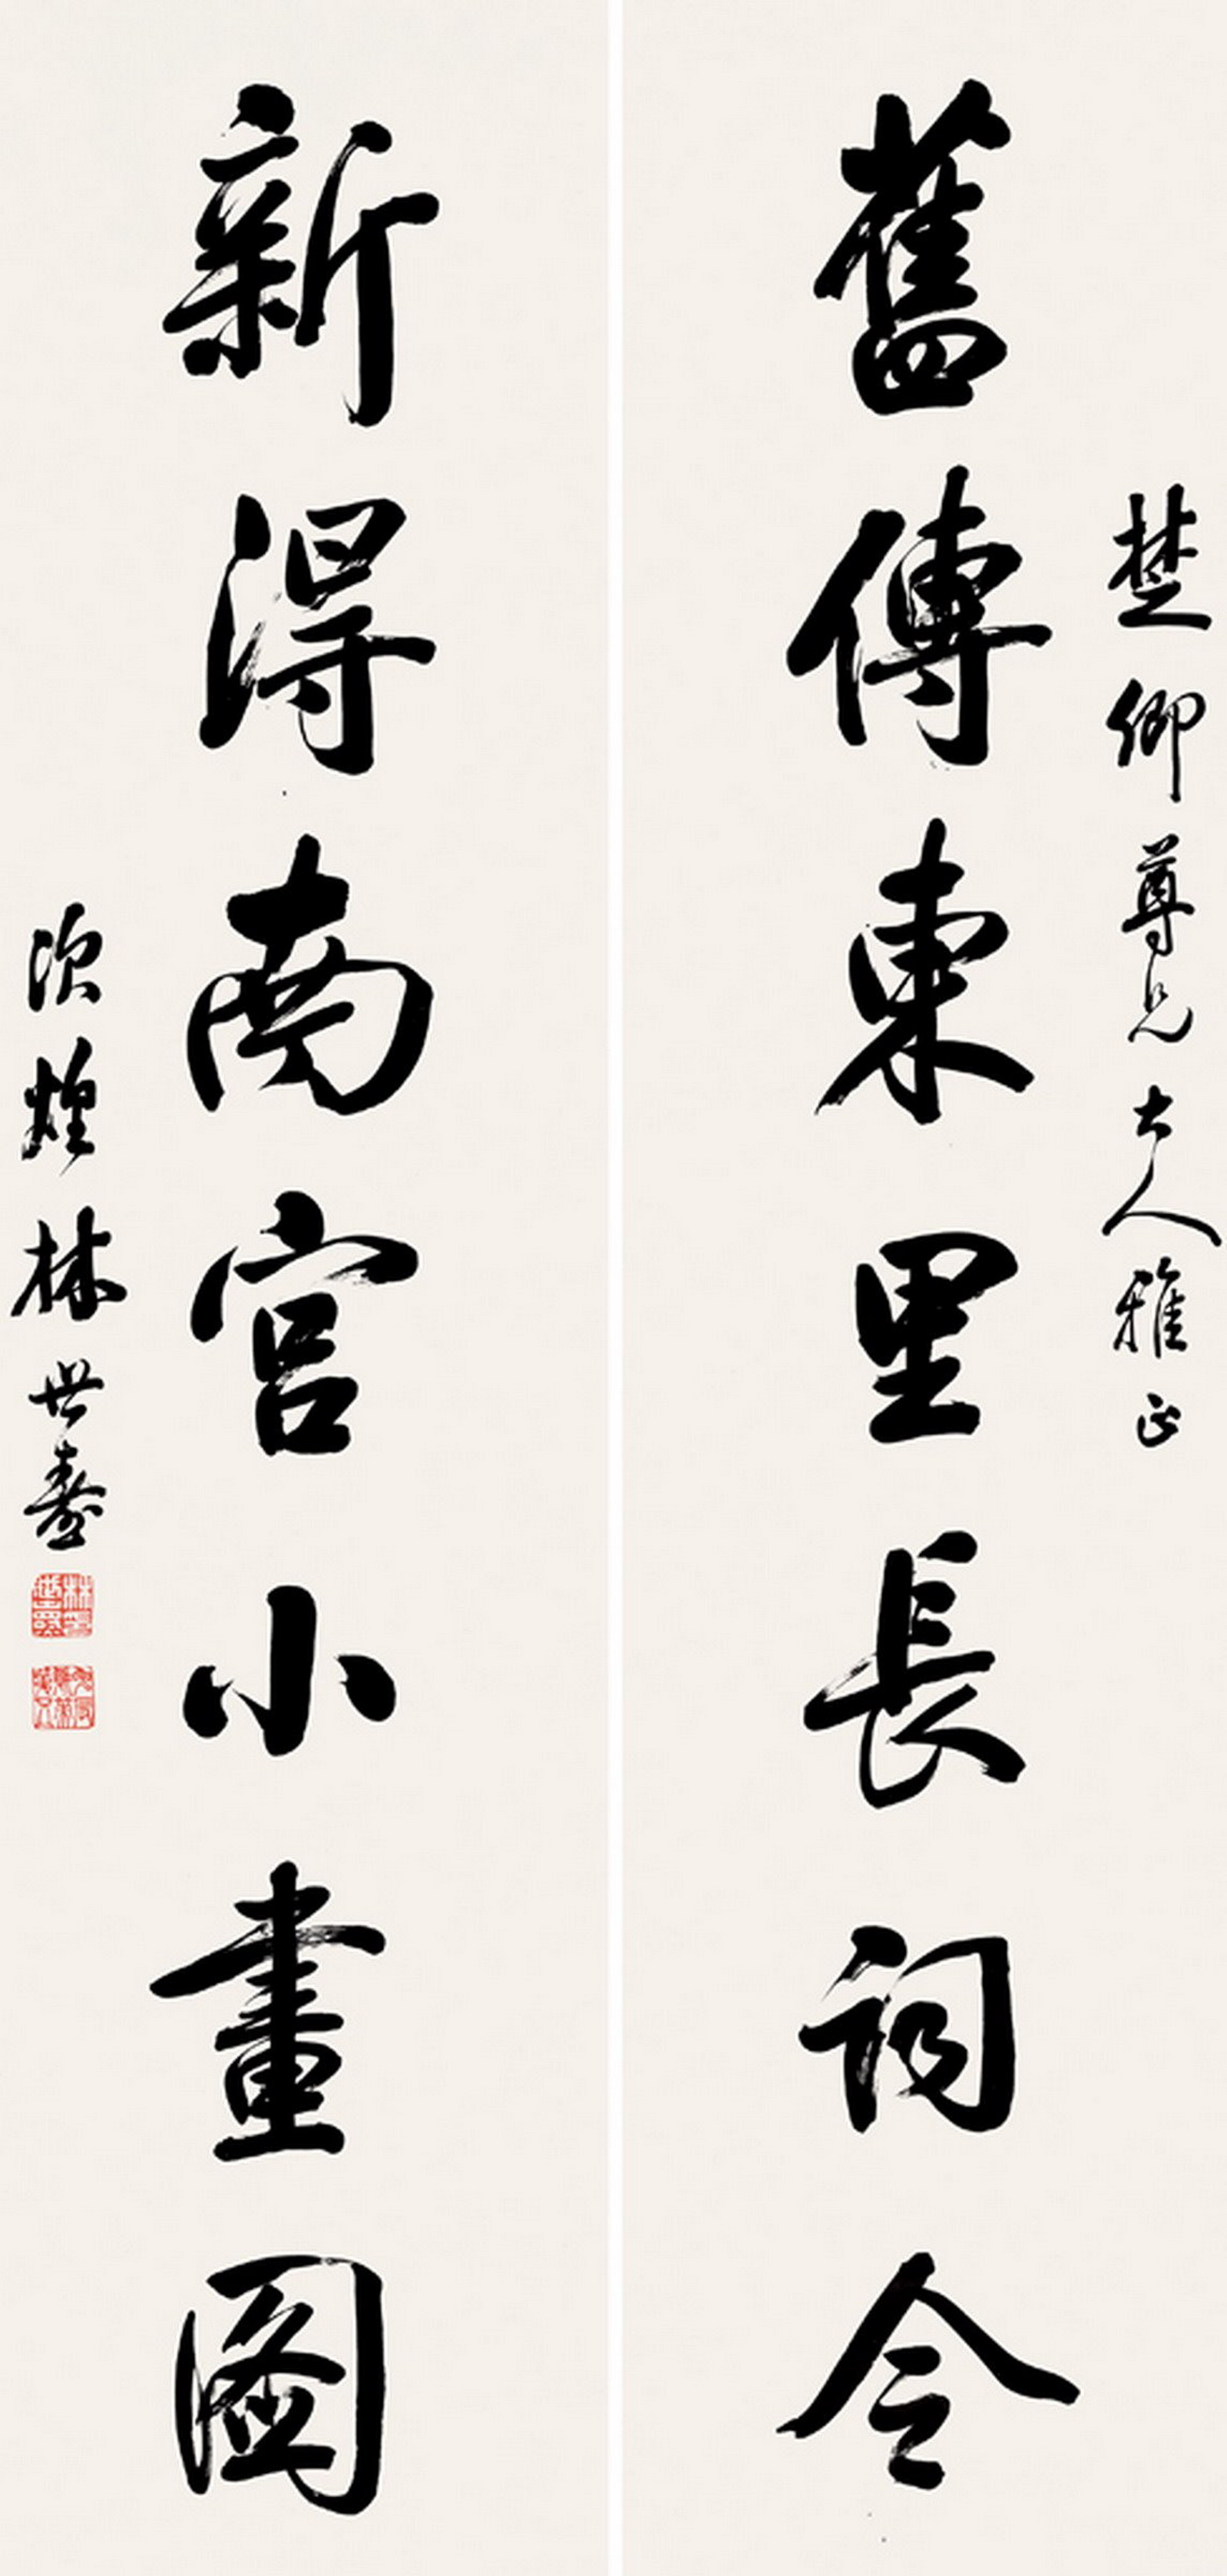 楚卿尊兄大人雅正
舊傳東里長詞令
新得南宮小畫圖
次煌林世燾